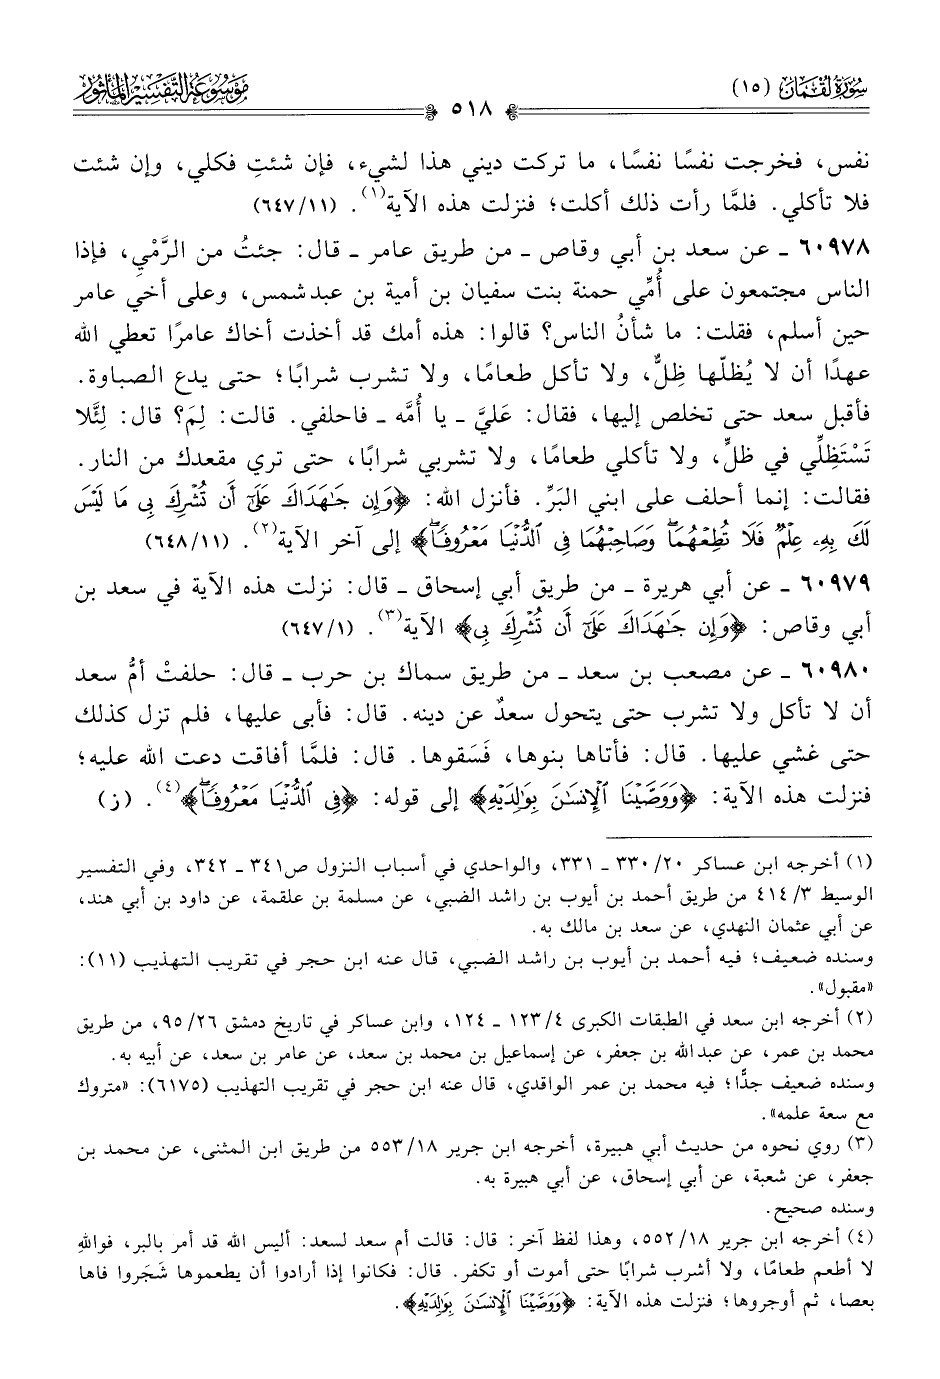 سُورَةُ لُقْمَان (١٥)
٥١٨
مَوْسُوعَةُ التَّفْسِيرِ المَأْثُور
نفس، فخرجت نفسًا نفسًا، ما تركت ديني هذا لشيء، فإن شئتِ فكلي، وإن شئت
فلا تأكلي. فلمَّا رأت ذلك أكلت؛ فنزلت هذه الآية(١). (٦٤٧/١١)
٦٠٩٧٨ ـ عن سعد بن أبي وقاص ـ من طريق عامر ـ قال: جئتُ من الرَّمْيِ، فإذا
الناس مجتمعون على أُمِّي حمنة بنت سفيان بن أمية بن عبد شمس، وعلى أخي عامر
حين أسلم، فقلت: ما شأنُ الناس؟ قالوا: هذه أمك قد أخذت أخاك عامرًا تعطي الله
عهدًا أن لا يُظلّها ظِلٌّ، ولا تأكل طعامًا، ولا تشرب شرابًا؛ حتى يدع الصباوة.
فأقبل سعد حتى تخلص إليها، فقال: عَليَّ ـ يا أُمَّه ـ فاحلفي. قالت: لِمَ؟ قال: لِئَلا
تَسْتَظِلِّي في ظلٍّ، ولا تأكلي طعامًا، ولا تشربي شرابًا، حتى تري مقعدك من النار.
فقالت: إنما أحلف على ابني البَرِّ. فأنزل الله: ﴿وَإِن جَٰهَدَاكَ عَلَىٰٓ أَن تُشۡرِكَ بِي مَا لَيۡسَ
لَكَ بِهِۦ عِلۡمٞ فَلَا تُطِعۡهُمَاۖ وَصَاحِبۡهُمَا فِي ٱلدُّنۡيَا مَعۡرُوفٗاۖ﴾ إلى آخر الآية(٢). (٦٤٨/١١)
٦٠٩٧٩ ـ عن أبي هريرة ـ من طريق أبي إسحاق ـ قال: نزلت هذه الآية في سعد بن
أبي وقاص: ﴿وَإِن جَٰهَدَاكَ عَلَىٰٓ أَن تُشۡرِكَ بِي﴾ الآية(٣). (٦٤٧/١)
٦٠٩٨٠ ـ عن مصعب بن سعد ـ من طريق سماك بن حرب ـ قال: حلفتْ أمُّ سعد
أن لا تأكل ولا تشرب حتى يتحول سعدٌ عن دينه. قال: فأبى عليها، فلم تزل كذلك
حتى غشي عليها. قال: فأتاها بنوها، فَسَقوها. قال: فلمَّا أفاقت دعت الله عليه؛
فنزلت هذه الآية: ﴿وَوَصَّيۡنَا ٱلۡإِنسَٰنَ بِوَٰلِدَيۡهِ﴾ إلى قوله: ﴿فِي ٱلدُّنۡيَا مَعۡرُوفٗاۖ﴾(٤). (ز)
(١) أخرجه ابن عساكر ٣٣٠/٢٠ ـ ٣٣١، والواحدي في أسباب النزول ص٣٤١ ـ ٣٤٢، وفي التفسير
الوسيط ٤١٤/٣ من طريق أحمد بن أيوب بن راشد الضبي، عن مسلمة بن علقمة، عن داود بن أبي هند،
عن أبي عثمان النهدي، عن سعد بن مالك به.
وسنده ضعيف؛ فيه أحمد بن أيوب بن راشد الضبي، قال عنه ابن حجر في تقريب التهذيب (١١):
«مقبول».
(٢) أخرجه ابن سعد في الطبقات الكبرى ١٢٣/٤ ـ ١٢٤، وابن عساكر في تاريخ دمشق ٩٥/٢٦، من طريق
محمد بن عمر، عن عبدالله بن جعفر، عن إسماعيل بن محمد بن سعد، عن عامر بن سعد، عن أبيه به.
وسنده ضعيف جدًّا؛ فيه محمد بن عمر الواقدي، قال عنه ابن حجر في تقريب التهذيب (٦١٧٥): «متروك
مع سعة علمه».
(٣) روي نحوه من حديث أبي هبيرة، أخرجه ابن جرير ٥٥٣/١٨ من طريق ابن المثنى، عن محمد بن
جعفر، عن شعبة، عن أبي إسحاق، عن أبي هبيرة به.
وسنده صحيح.
(٤) أخرجه ابن جرير ٥٥٢/١٨، وهذا لفظ آخر: قال: قالت أم سعد لسعد: أليس الله قد أمر بالبر، فواللهِ
لا أطعم طعامًا، ولا أشرب شرابًا حتى أموت أو تكفر. قال: فكانوا إذا أرادوا أن يطعموها شَجَروا فاها
بعصا، ثم أوجروها؛ فنزلت هذه الآية: ﴿وَوَصَّيۡنَا ٱلۡإِنسَٰنَ بِوَٰلِدَيۡهِ﴾.